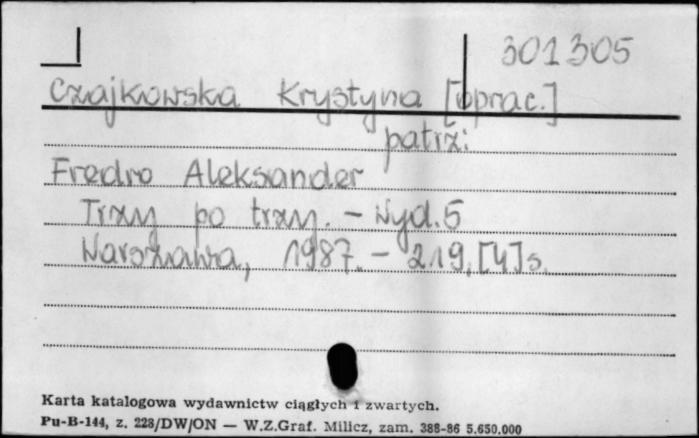 301305
Czajkowska Krystyna [oprac.]
patrz:
Fredro Aleksander
Trzy po trzy. – Wyd. 5
Warszawa, 1987. – 219, [4] s.
Karta katalogowa wydawnictw ciągłych i zwartych.
Pu-B-144, z. 228/DW/ON — W.Z.Graf. Milicz, zam. 388-86 5.650.000